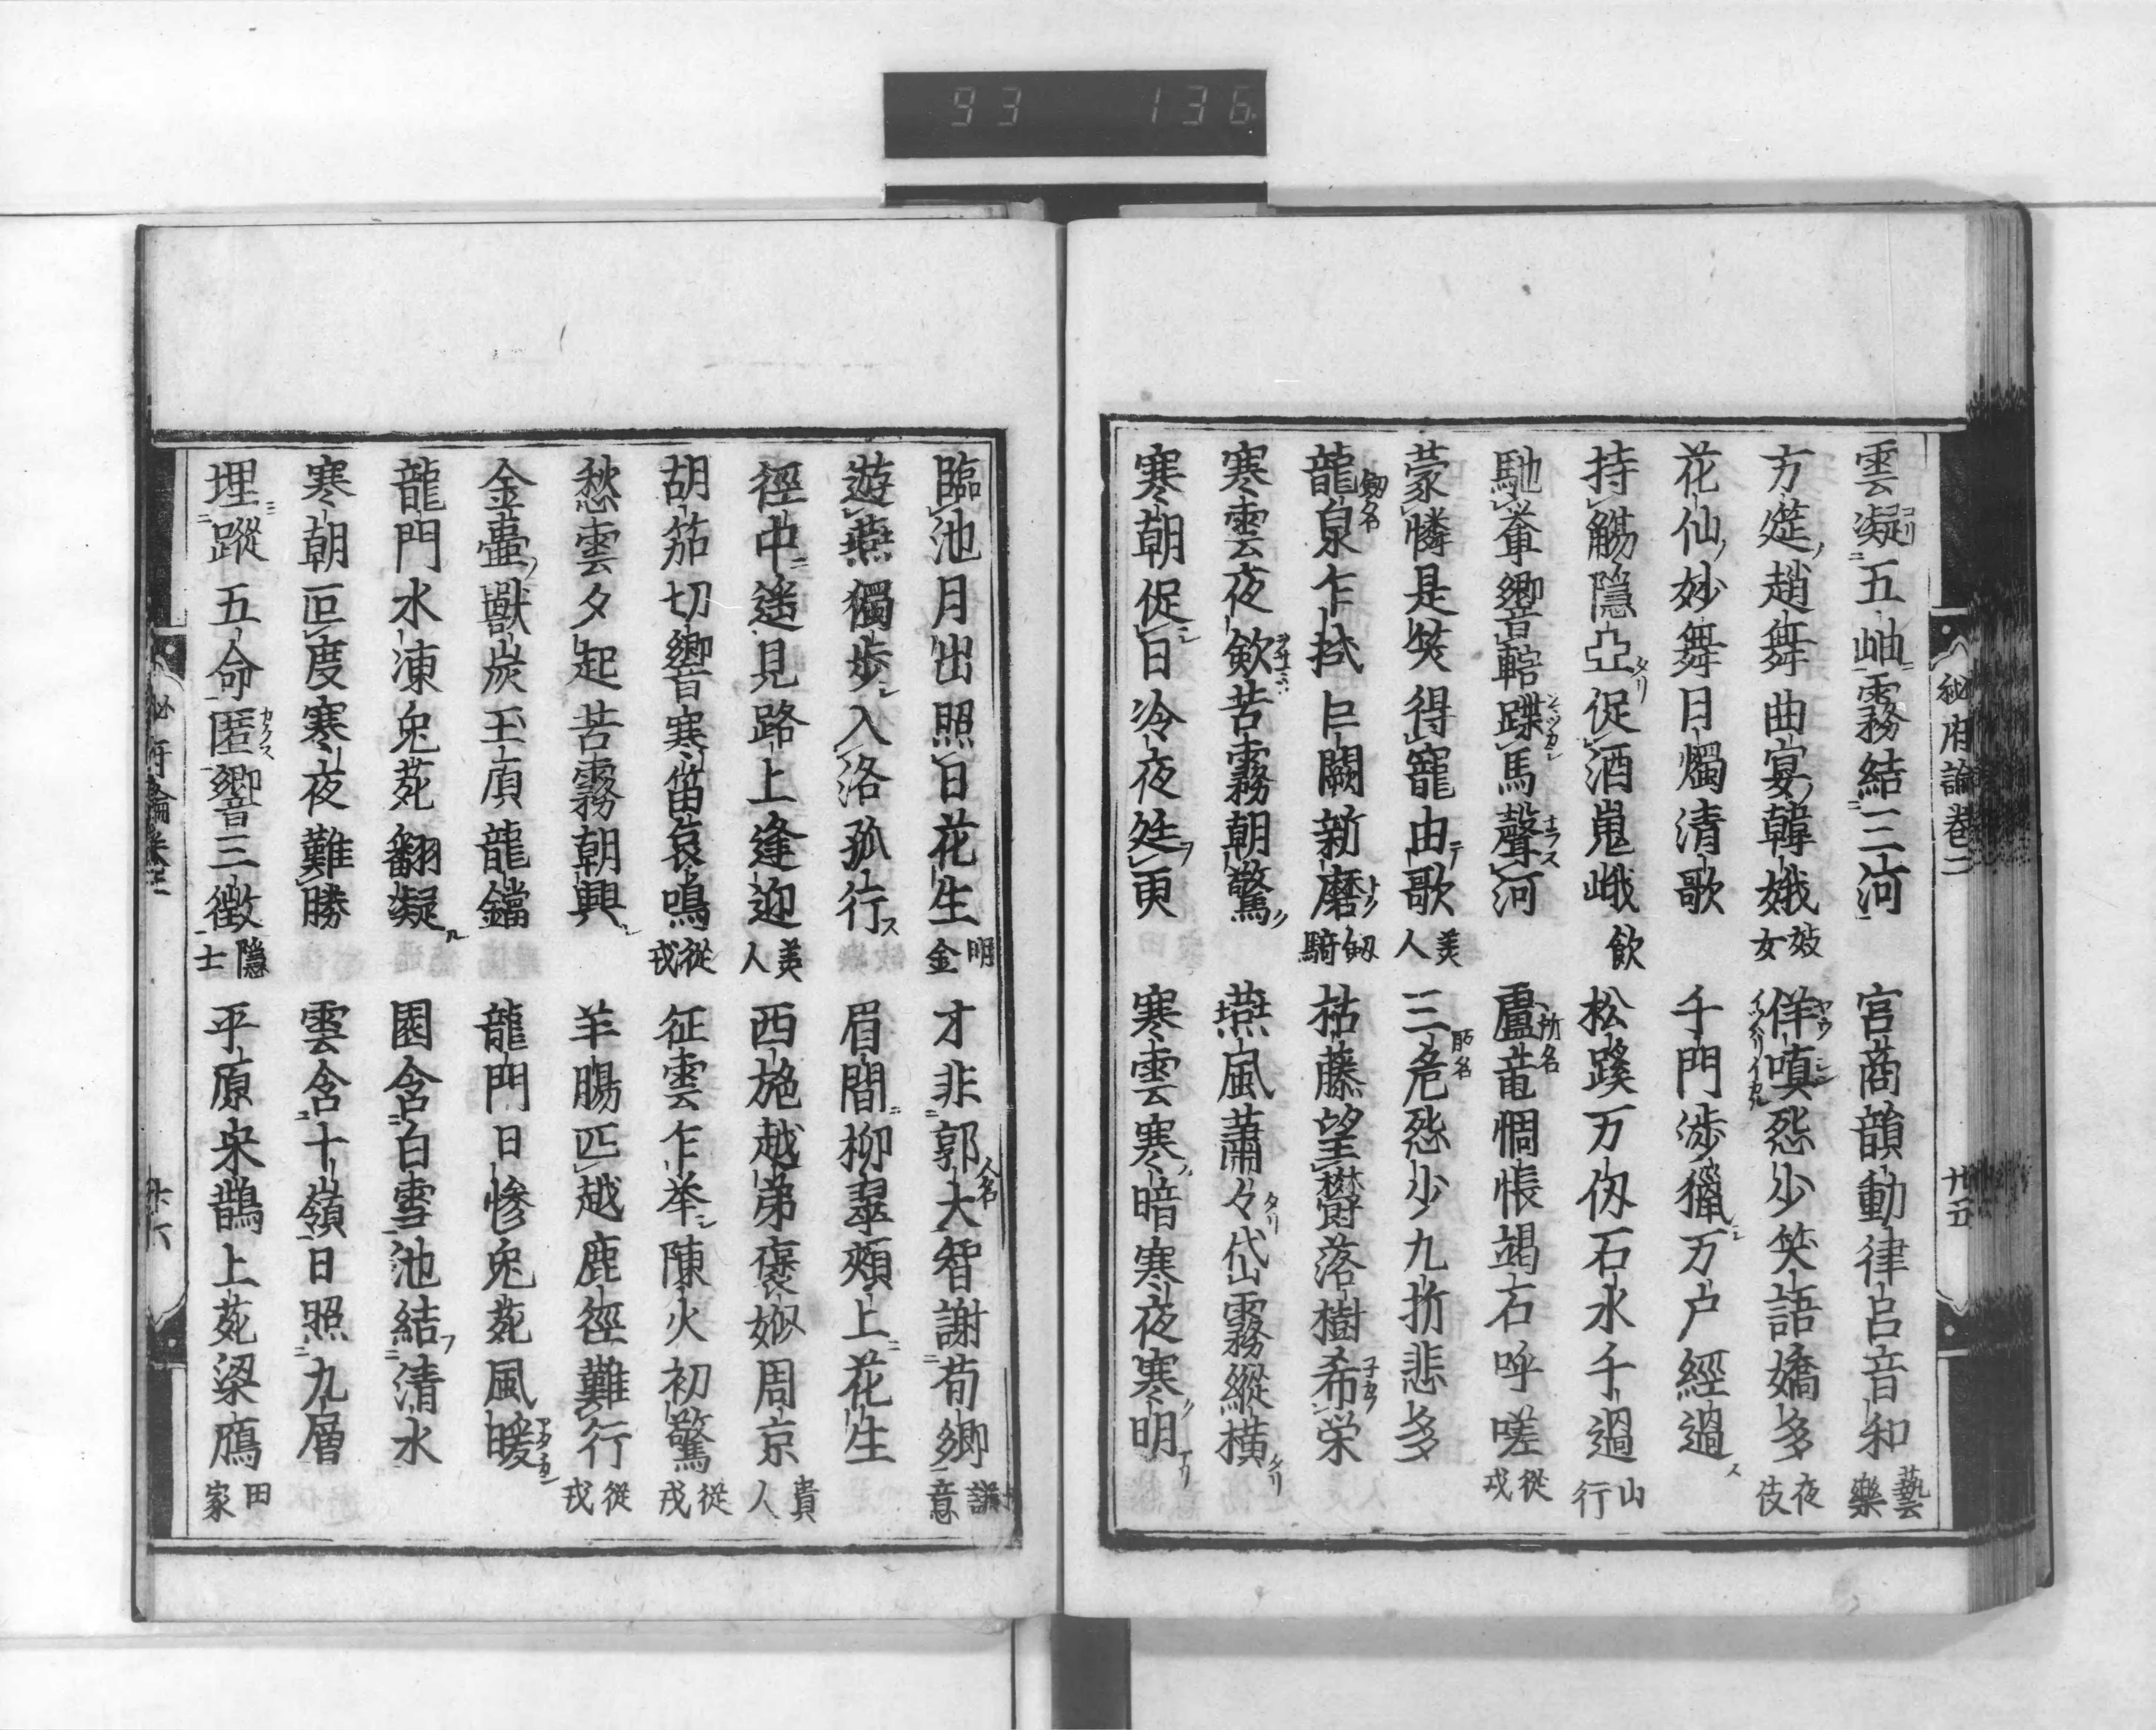 93 136
秘府論卷二
廿五
雲凝五岫霧結三河 宮商韻動律呂音和 藝樂
方筵趙舞曲宴韓娥 妓女 佯嗔怨少笑語嬌多 夜伎
花仙妙舞日燭清歌 千門渉獵万户經過
持觴隠亞促酒嵬峨 飲 松蹊万仭石水千過 山行
馳奔響轄蹀馬聲河 盧竜惆悵竭石呼嗟 從戎
蒙憐是笑得寵由歌 美人 三危怨少九折悲多
龍泉乍拭巨闕新磨 劒騎 枯藤望欝落樹希栄
寒雲夜歛苦霧朝驚 燕風蕭々岱霧縱横
寒朝促日冷夜延更 寒雲寒暗寒夜寒明
臨池月出照日花生 明金 才非郭大智謝荀卿 謙意
遊燕獨歩入洛孤行 眉間柳翠頰上花生
徑中遥見路上逢迎 美人 西施越弟褒姒周京 貴人
胡笳切響寒笛哀鳴 從戎 征雲乍挙陳火初驚 從戎
愁雲夕起苦霧朝興 羊腸匹越鹿徑難行 從戎
金臺獸炭玉頂龍鐺 龍門日慘兎菀風暖
龍門水凍兎菀翻凝 園含白雪池結清水
寒朝叵度寒夜難勝 雲含十嶺日照九層
埋蹤五命匿響三徵 隠士 平原宋鵲上菀梁鷹 田家
廿六